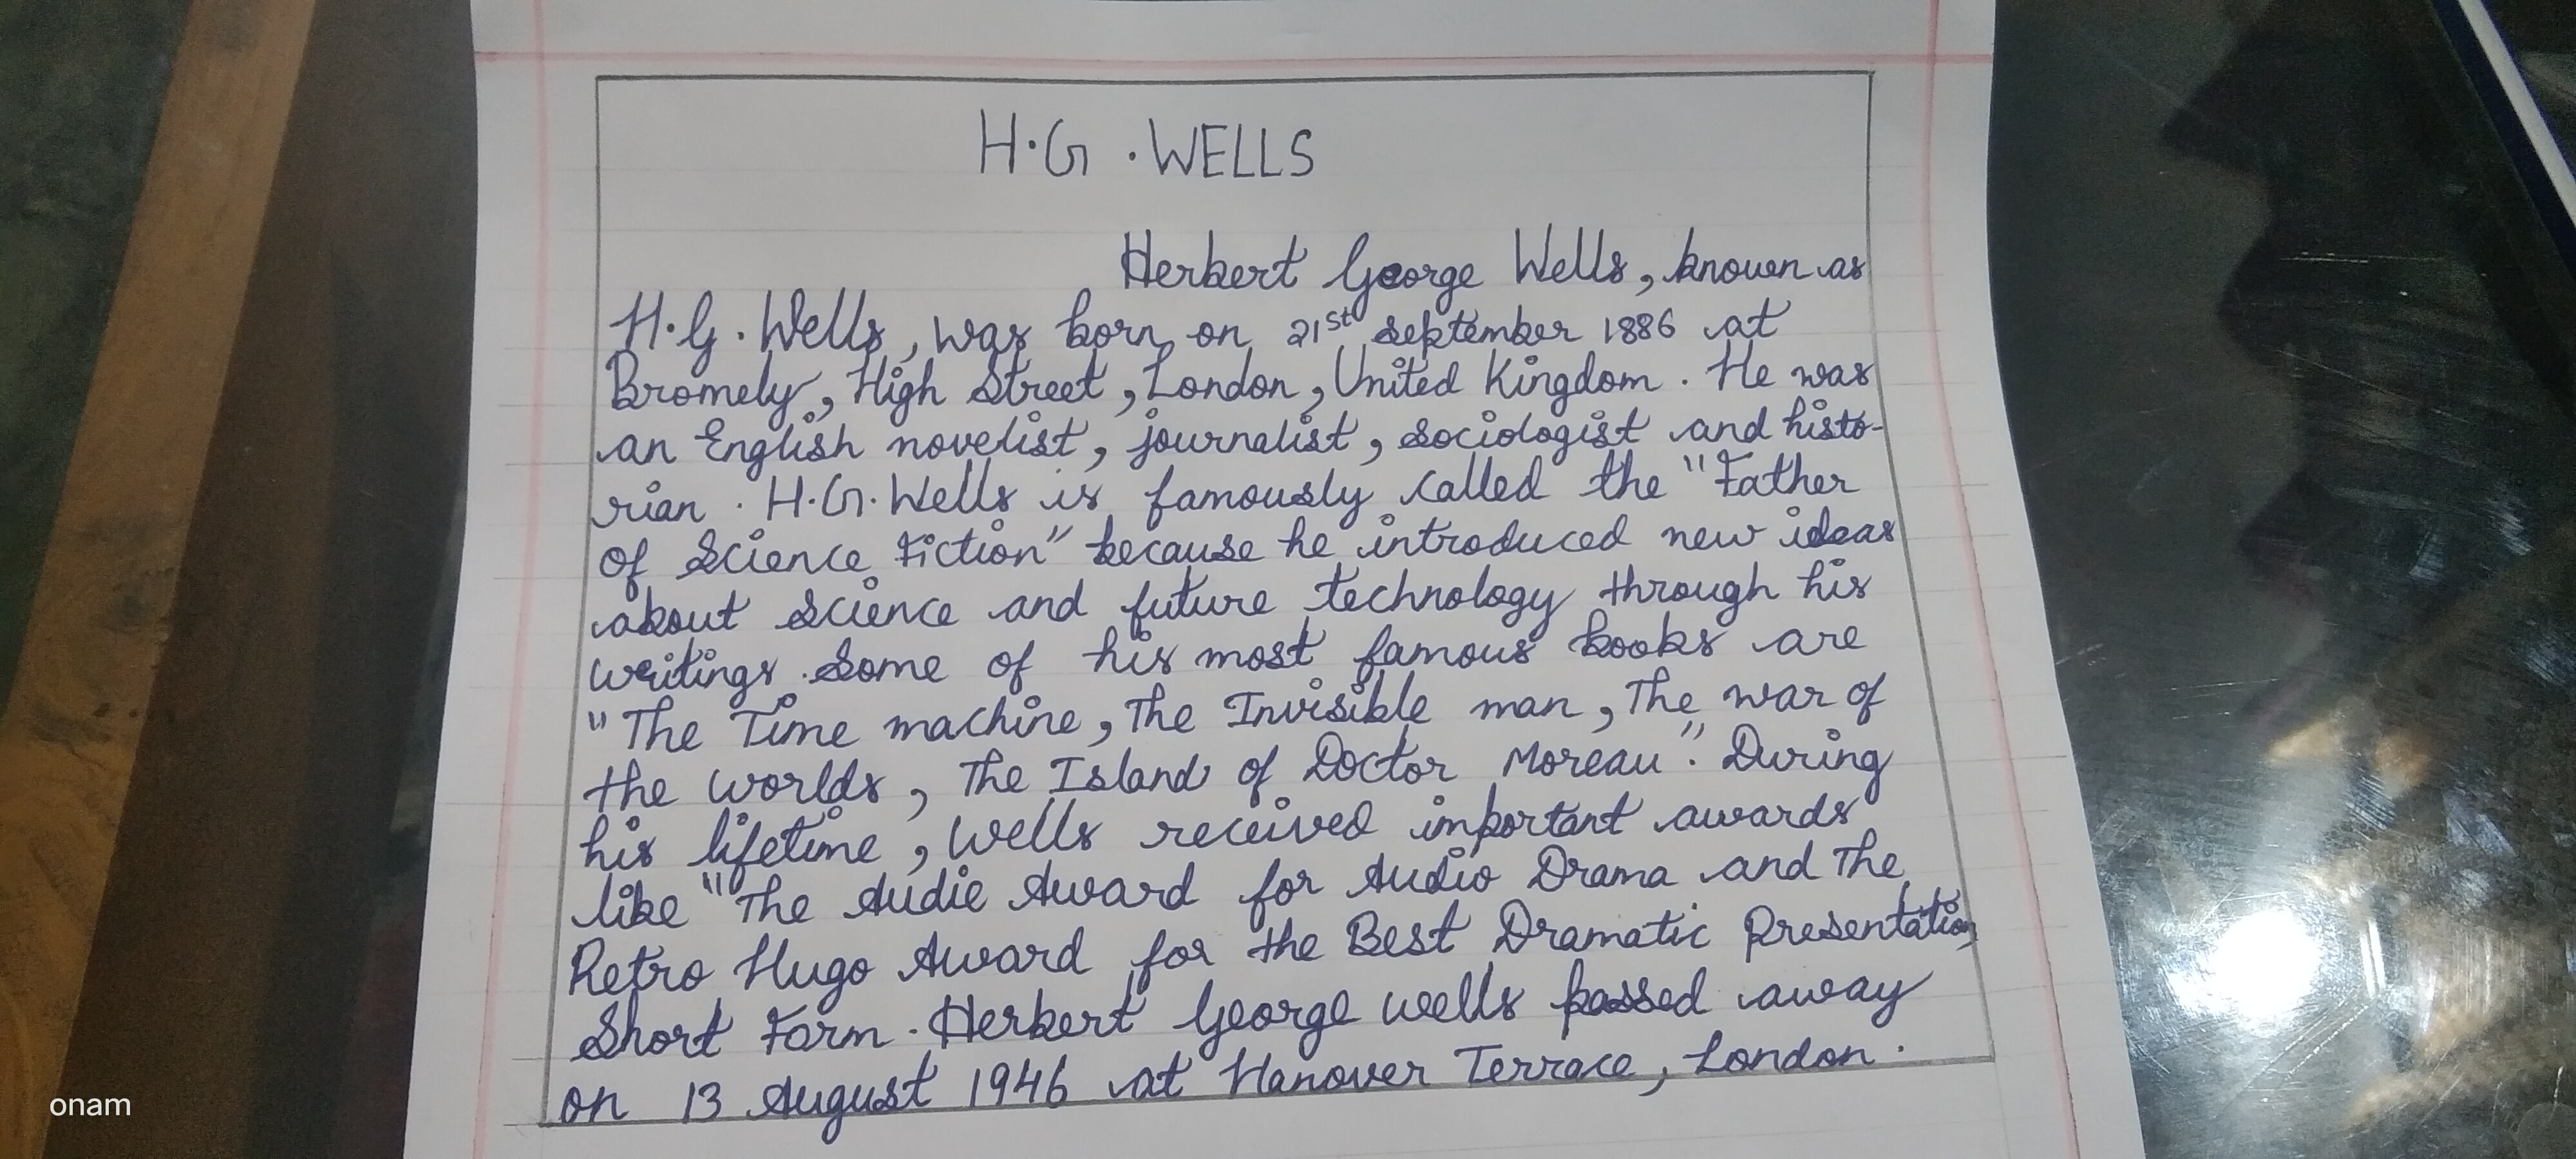 H.G .WELLS
Herbert George Wells, known as
H.G. Wells, was born on 21st september 1886 at
Bromely, High Street, London, United Kingdom. He was
an English novelist, journalist, sociologist and histo-
rian. H.G. Wells is famously called the "Father
of Science Fiction" because he introduced new ideas
about science and future technology through his
writings. Some of his most famous books are
"The Time machine, The Invisible man, The war of
the worlds, The Island of Doctor Moreau". During
his lifetime, Wells received important awards
like "The Audie Award for Audio Drama and The
Retro Hugo Award for the Best Dramatic Presentation,
Short Form. Herbert George wells passed away
on 13 August 1946 at Hanover Terrace, London.
onam